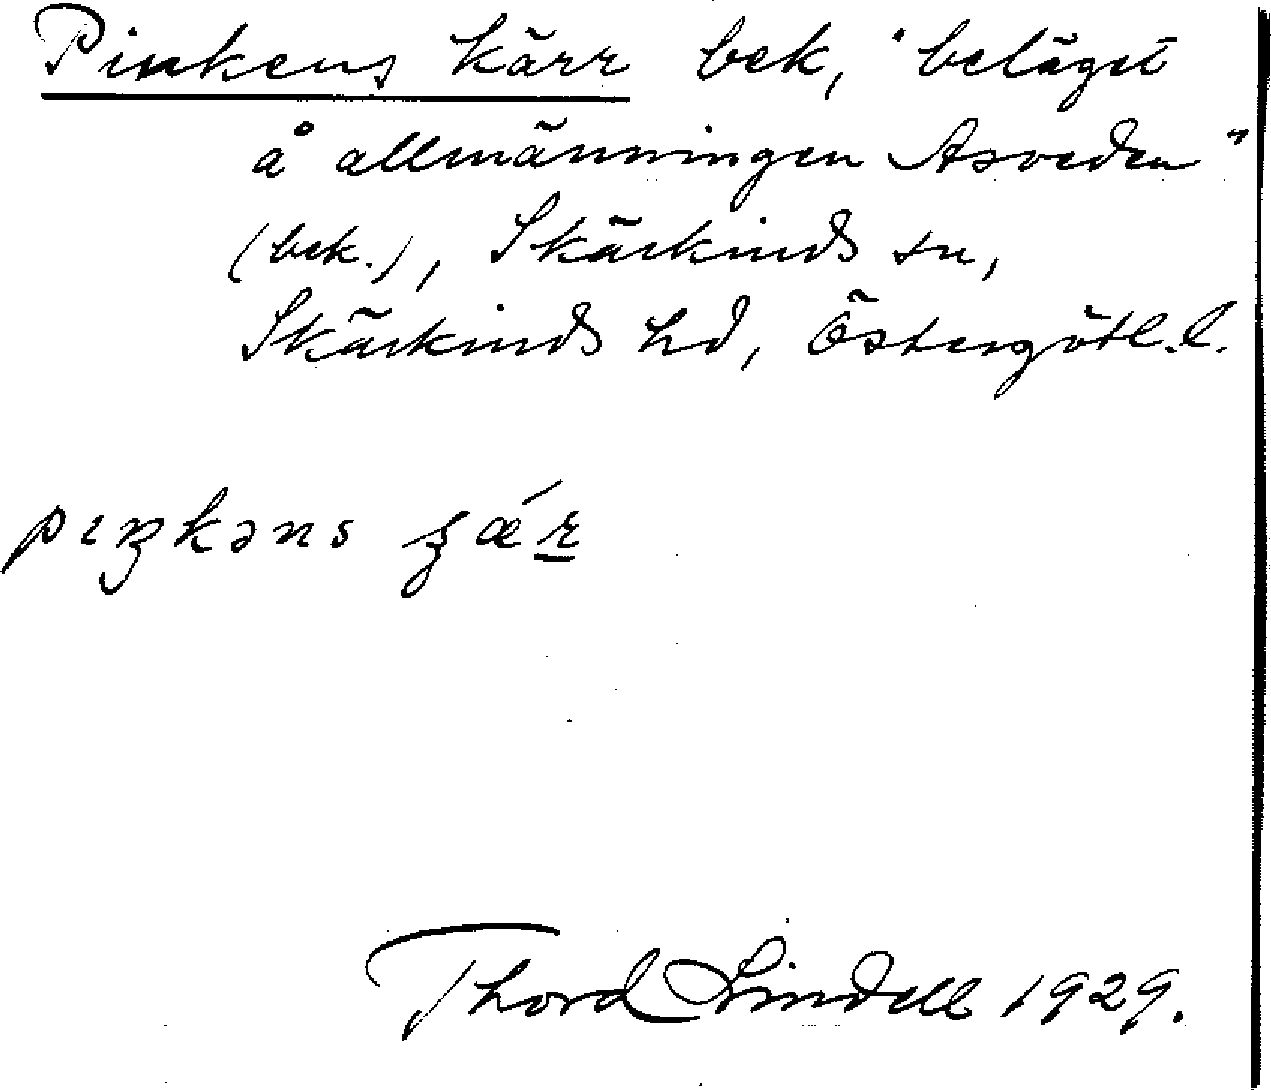 Pinkens kärr bek, "beläget
å allmänningen Asveden"
(bek.), Skärkinds sn,
Skärkinds hd, Östergötl. l.
pıŋkəns ɕǽr
Thord Lindell 1929.